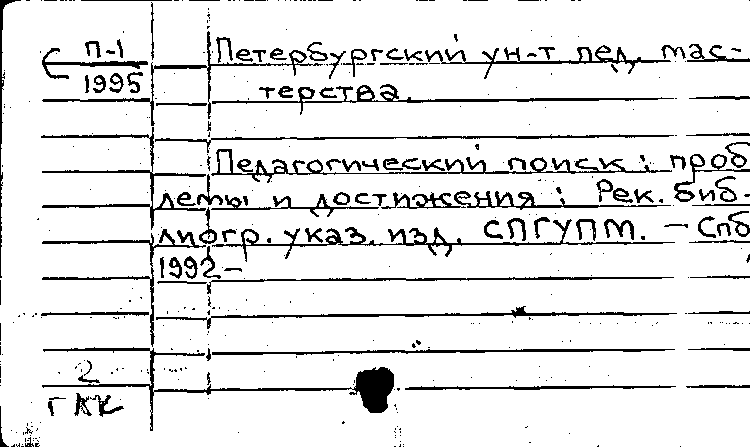 П-1
1995
Петербургский ун-т пед. мас-
терства.
Педагогический поиск: проб
лемы и достижения: Рек. биб-
лиогр. указ. изд. СПГУПМ. — Спб
1992-
2
ГКК